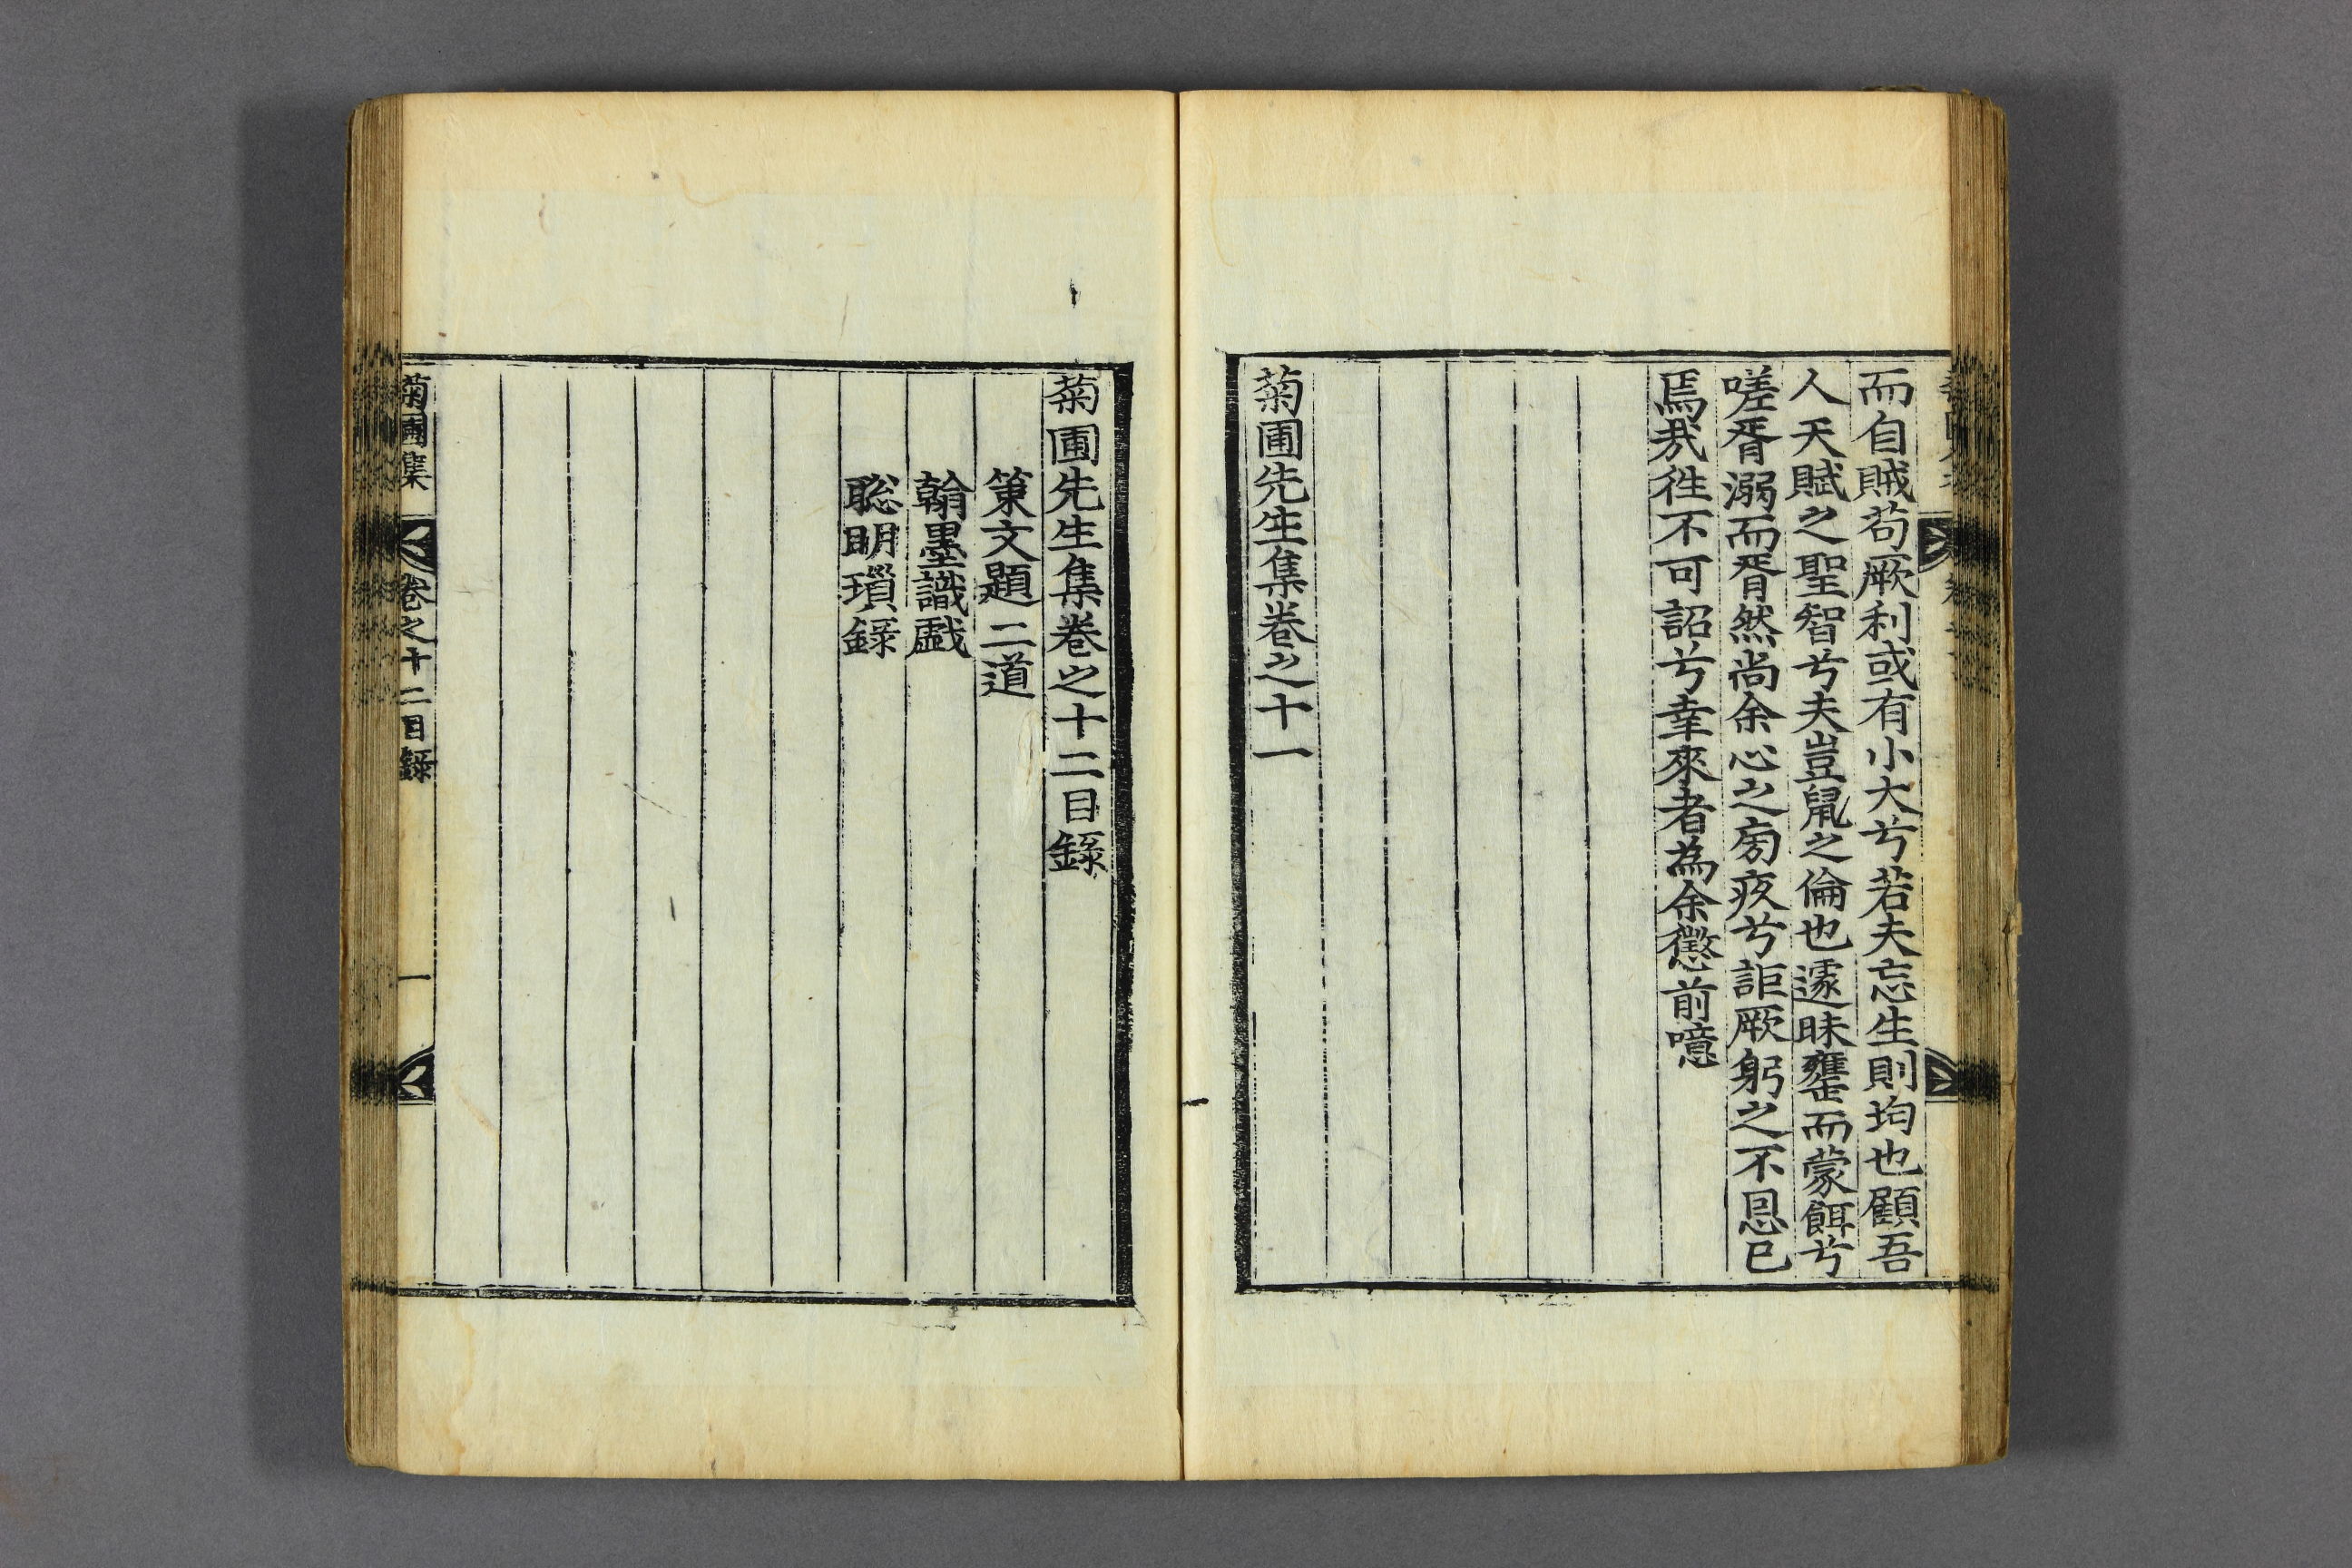 而自賊苟厥利或有小大兮若夫忘生則均也顧吾
人天賦之聖智兮夫豈鼠之倫也遽昧壅而蒙餌兮
嗟胥溺而胥然尚余心之疚兮詎厥躬之不恳已
焉哉徃不可詔兮幸來者為余懲前噫
菊圃先生集卷之十一
菊圃先生集卷之十二目錄
策文題二道
翰墨識戱
聡明瑣錄
菊圃集
卷之十二目錄
一